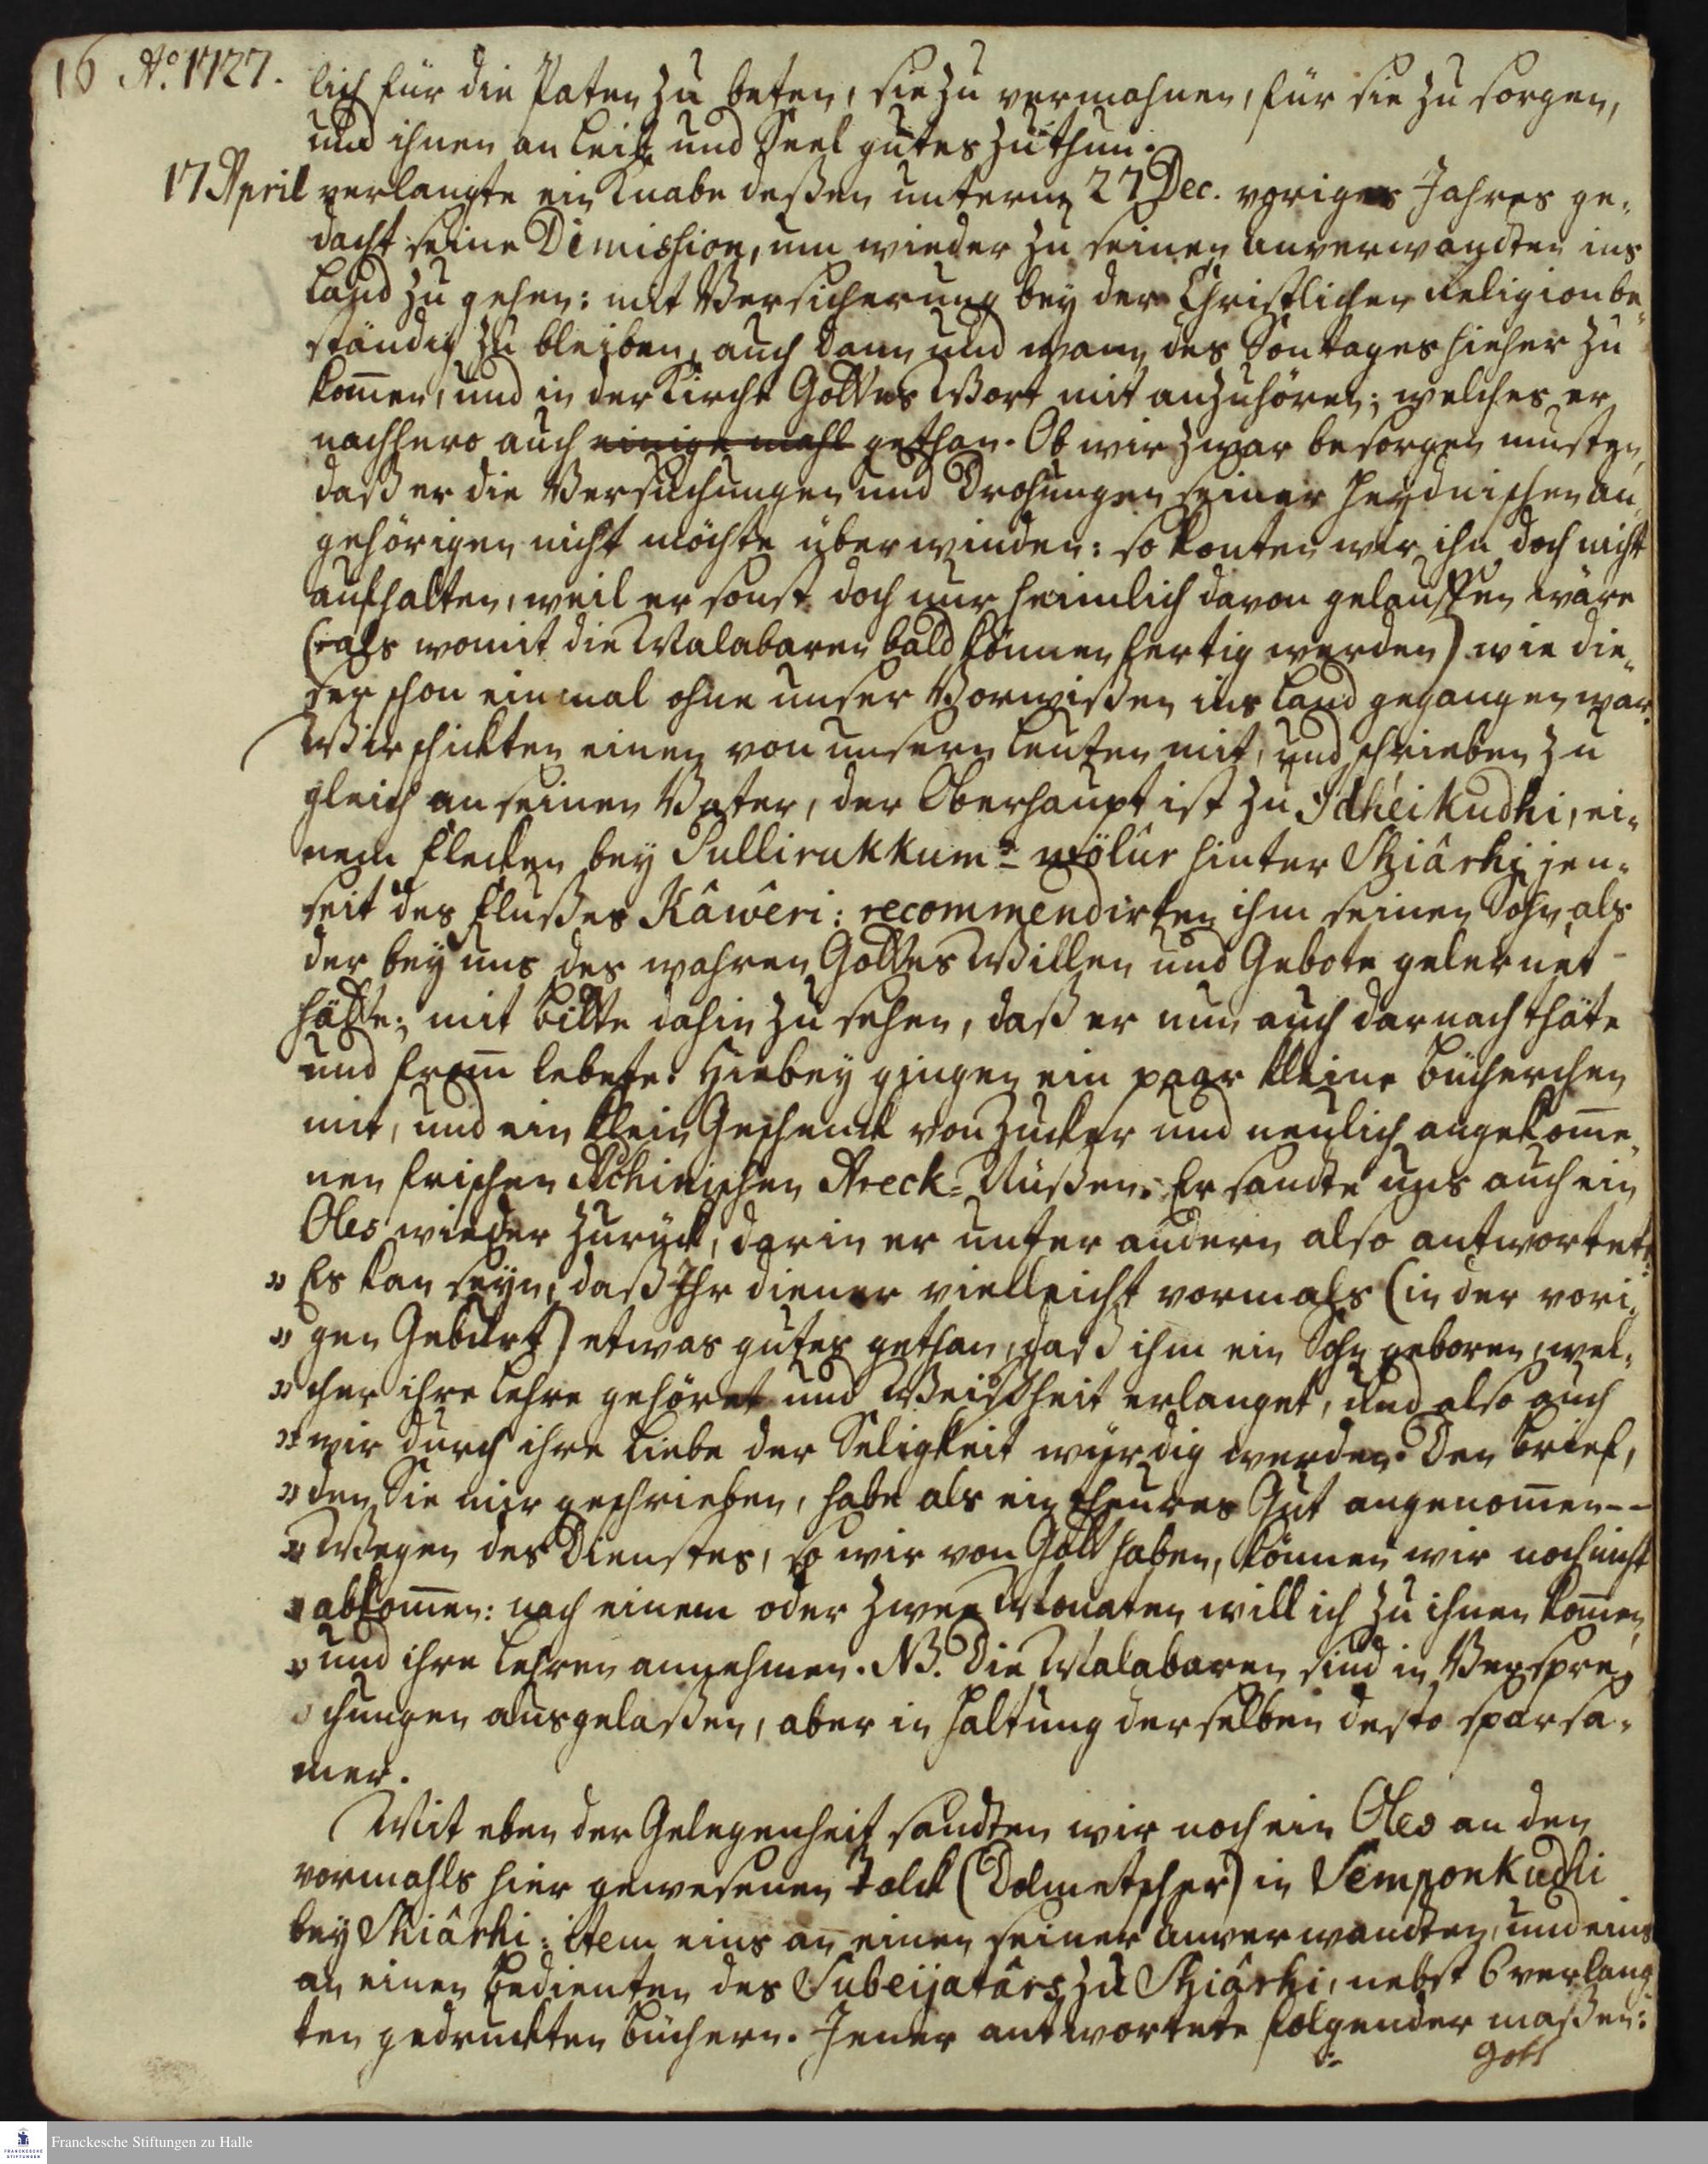 16 Aº. 1727.
lich für die Paten zu beten, sie zu vermahnen, für sie zu sorgen,
und ihnen an Leib und Seel gutes zu thun.
17 April verlangte ein Knabe deßen unterm 27 Dec. voriges Jahres ge-
dacht seine Dimission, um wieder zu seinen anverwandten ins
Land zu gehen: mit Versicherung bey der Christlichen Religion be-
ständig zu bleiben, auch dann und wann des Sontages hieher zu
kom̄en, und in der Kirche Gottes Wort mit anzuhören; welches er
nachhero auch einige mahl gethan. Ob wir zwar besorgen musten,
daß er die Versuchungen und Drohungen seiner Heydnischen an-
gehörigen nicht möchte überwinden: so konten wir ihn doch nicht
aufhalten, weil er sonst doch nur heimlich davon gelauffen wäre
(als womit die Malabaren bald können fertig werden) wie die-
ser schon einmal ohne unser Vorwißen ins Land gegangen war.
Wir schickten einen von unsern Leuten mit, und schrieben zu
gleich an seinen Vater, der Oberhaupt ist zu Idheikudhi, ei-
nem Flecken bey Pullirukkum- wölûr hinter Shiârhi jen-
seit des Flußes Kâwêri: recommendirten ihm seinen Sohn als
der bey uns des wahren Gottes Willen und Gebote gelernet
hätte; mit Bitte dahin zu sehen, daß er nun auch darnach thäte
und from̄ lebete. Hiebey gingen ein paar kleine Bücherchen
mit, und ein klein Geschenck von Zucker und neulich angekom̄e-
nen frischen Achinischen Areck-Nüßen. Er sandte uns auch ein
Oles wieder zurück, darin er unter andern also antwortet:
" Es kan seyn, daß Ihr diener vielleicht vormals (in der vori-
" gen Geburt) etwas gutes gethan, daß ihm ein Sohn geboren, wel-
" cher ihre Lehre gehöret und Weißheit erlanget, und also auch
" wir durch ihre Liebe der Seligkeit würdig werden. Den Brief,
" den Sie mir geschrieben, habe als ein theures Gut angenom̄en--
" Wegen des Dienstes, so wir von Gott haben, können wir noch nicht
" abkom̄en: nach einem oder zween Monaten will ich zu ihnen kom̄en,
" und ihre Lehren annehmen. NB. Die Malabaren sind in Verspre-
chungen ausgelaßen, aber in Haltung derselben desto sparsa-
mer.
Mit eben der Gelegenheit sandten wir noch ein Oles an den
vormahls hier gewesenen Tolck (Dolmetscher) in Semponkudhi
bey Shiârhi: item eins an einen seiner Anverwandten, und eins
an einen Bedienten des Subeijatârs zu Shiârhi, nebst 6 verlang-
ten gedruckten Büchern. Jener antwortete folgender maßen:
Gott
Franckesche Stiftungen zu Halle
FRANCKESCHE STIFTUNGEN